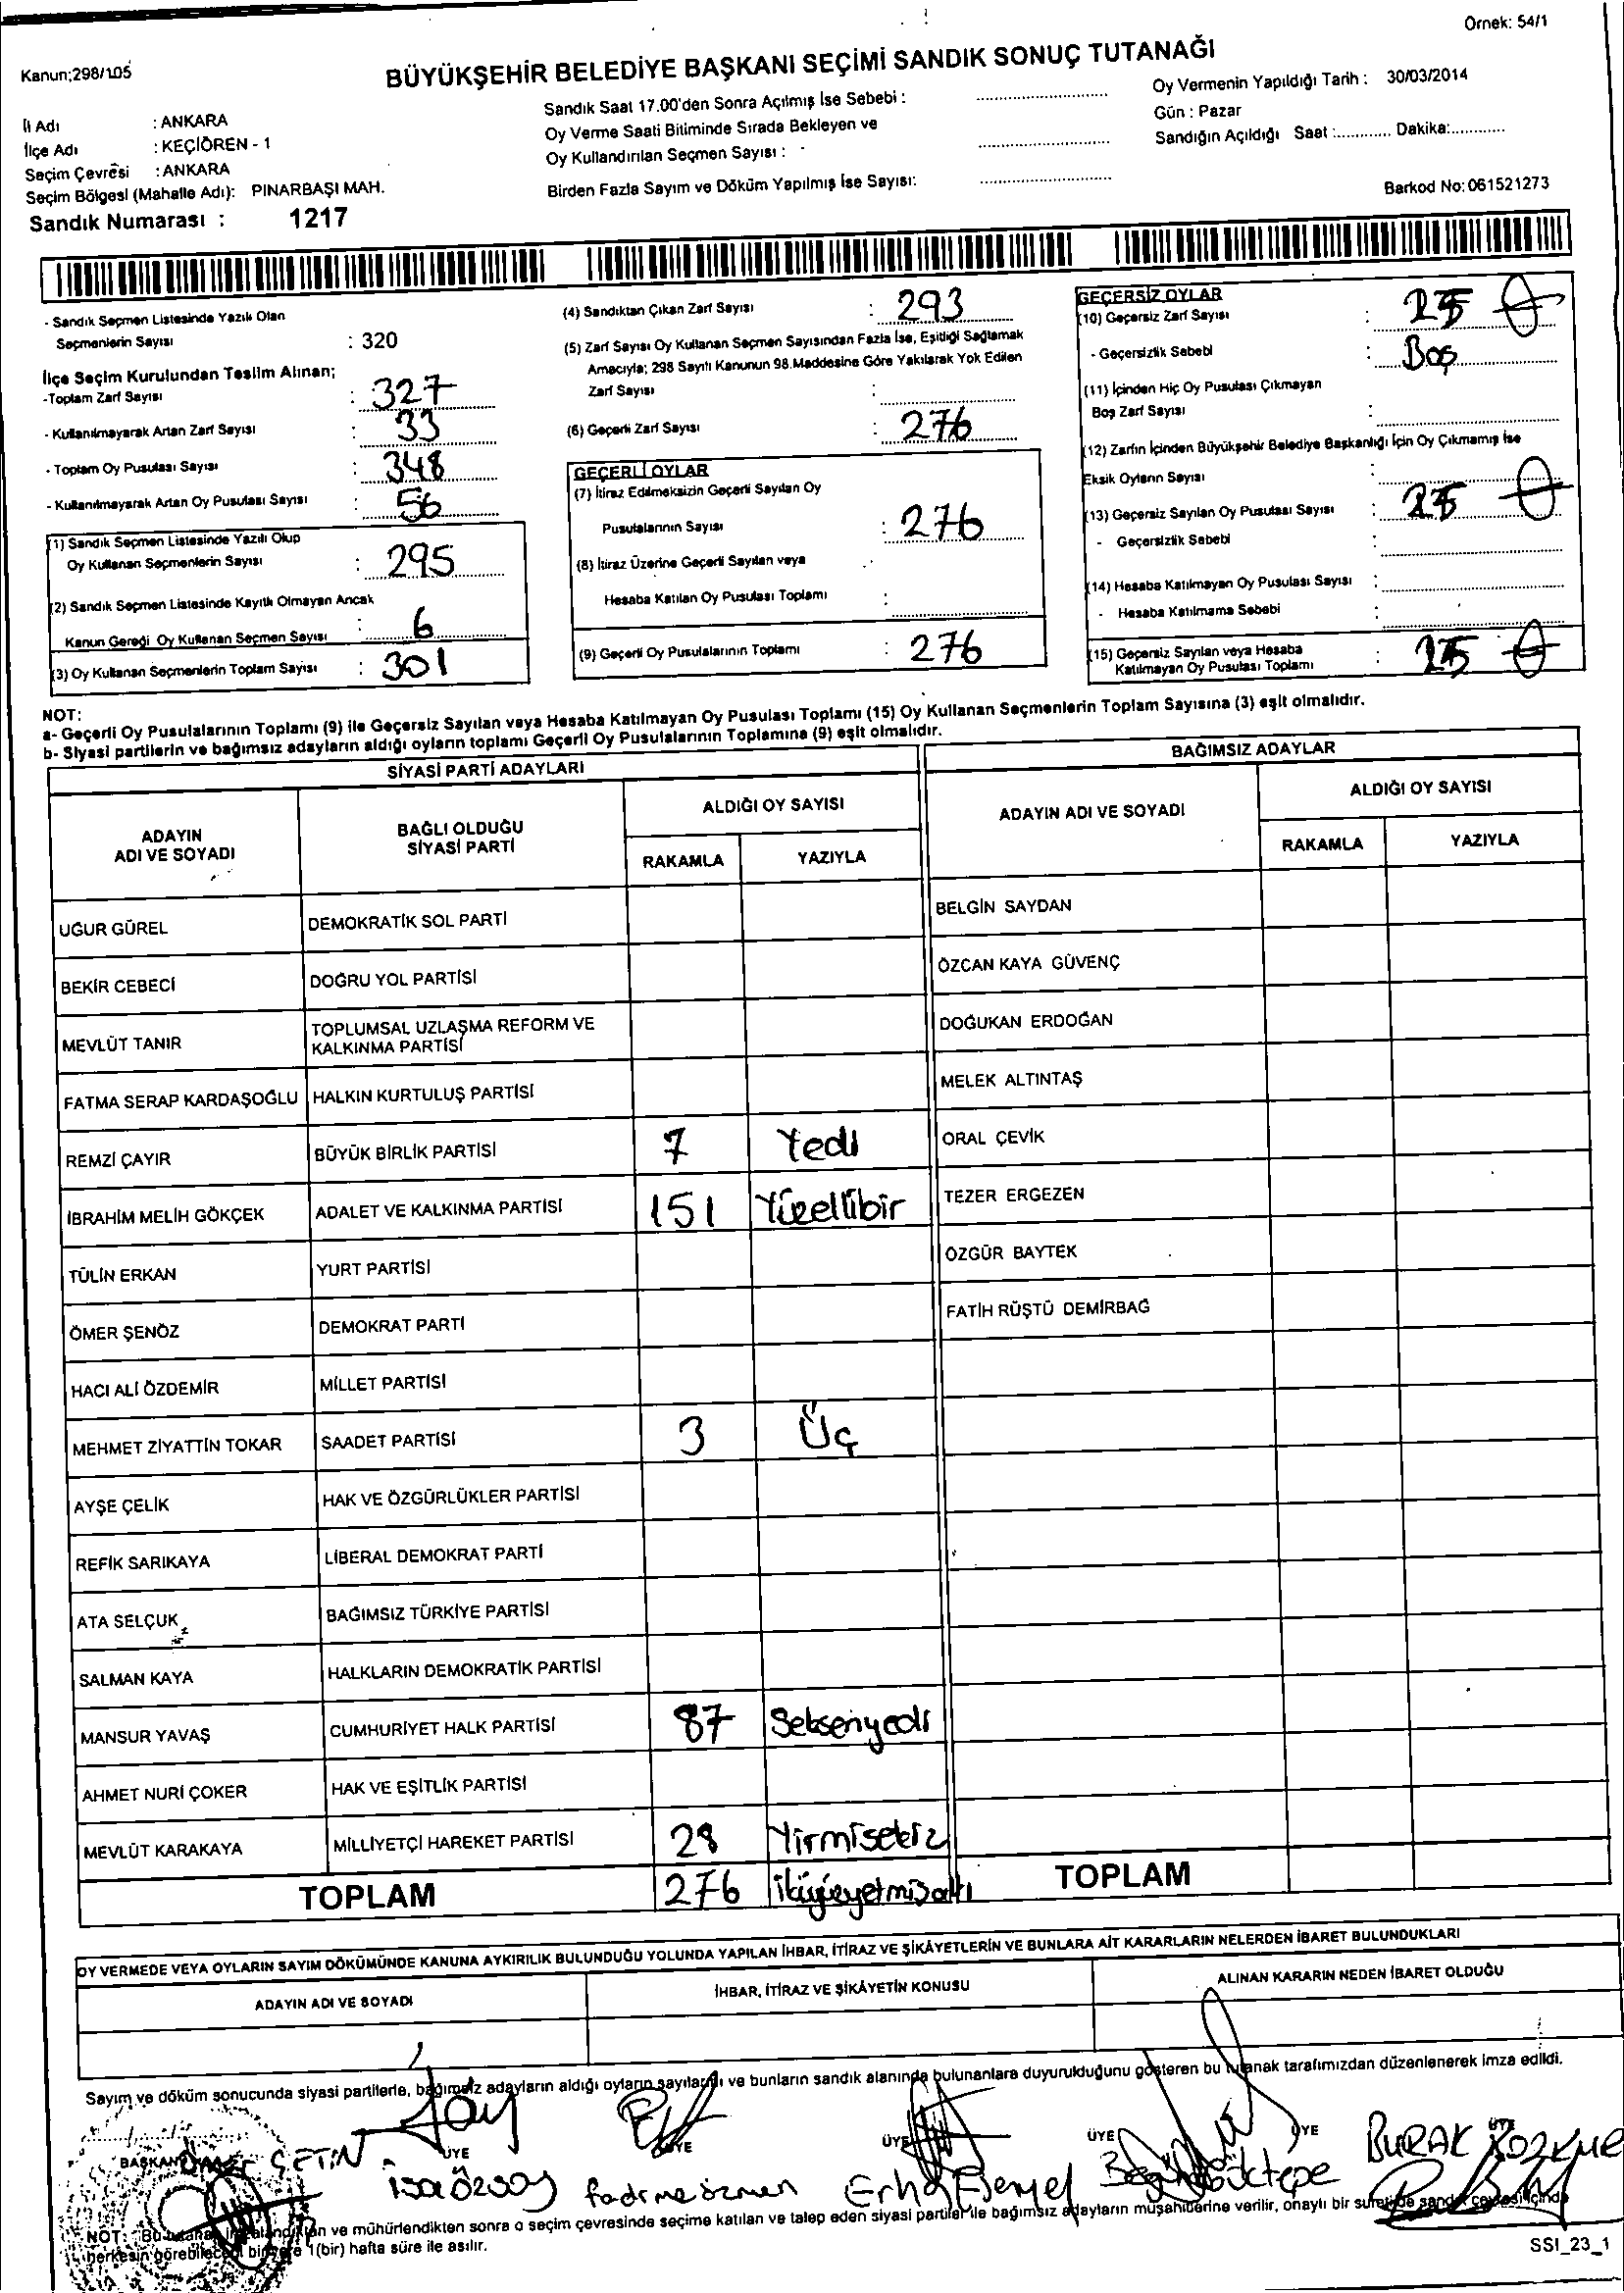 Örnek: 54/1
Kanun;298/105
BÜYÜKŞEHİR BELEDİYE BAŞKANI SEÇİMİ SANDIK SONUÇ TUTANAĞI
İl Adı : ANKARA
İlçe Adı : KEÇİÖREN - 1
Seçim Çevresi : ANKARA
Seçim Bölgesi (Mahalle Adı): PINARBAŞI MAH.
Sandık Numarası : 1217
Sandık Saat 17.00'den Sonra Açılmış İse Sebebi :
Oy Verme Saati Bitiminde Sırada Bekleyen ve
Oy Kullandırılan Seçmen Sayısı :
Birden Fazla Sayım ve Döküm Yapılmış İse Sayısı:
Oy Vermenin Yapıldığı Tarih : 30/03/2014
Gün : Pazar
Sandığın Açıldığı Saat :............ Dakika:............
Barkod No: 061521273
- Sandık Seçmen Listesinde Yazılı Olan
Seçmenlerin Sayısı : 320
İlçe Seçim Kurulundan Teslim Alınan;
-Toplam Zarf Sayısı : 327
- Kullanılmayarak Artan Zarf Sayısı : 33
- Toplam Oy Pusulası Sayısı : 348
- Kullanılmayarak Artan Oy Pusulası Sayısı : 56
(1) Sandık Seçmen Listesinde Yazılı Olup
Oy Kullanan Seçmenlerin Sayısı : 295
(2) Sandık Seçmen Listesinde Kayıtlı Olmayan Ancak
Kanun Gereği Oy Kullanan Seçmen Sayısı : 6
(3) Oy Kullanan Seçmenlerin Toplam Sayısı : 301
(4) Sandıktan Çıkan Zarf Sayısı : 293
(5) Zarf Sayısı Oy Kullanan Seçmen Sayısından Fazla İse, Eşitliği Sağlamak
Amacıyla; 298 Sayılı Kanunun 98.Maddesine Göre Yakılarak Yok Edilen
Zarf Sayısı :
(6) Geçerli Zarf Sayısı : 276
GEÇERLİ OYLAR
(7) İtiraz Edilmeksizin Geçerli Sayılan Oy
Pusulalarının Sayısı : 276
(8) İtiraz Üzerine Geçerli Sayılan veya
Hesaba Katılan Oy Pusulası Toplamı :
(9) Geçerli Oy Pusulalarının Toplamı : 276
GEÇERSİZ OYLAR
(10) Geçersiz Zarf Sayısı :
- Geçersizlik Sebebi : Boş
(11) İçinden Hiç Oy Pusulası Çıkmayan
Boş Zarf Sayısı :
(12) Zarfın İçinden Büyükşehir Belediye Başkanlığı İçin Oy Çıkmamış İse
Eksik Oyların Sayısı :
(13) Geçersiz Sayılan Oy Pusulası Sayısı :
- Geçersizlik Sebebi :
(14) Hesaba Katılmayan Oy Pusulası Sayısı :
- Hesaba Katılmama Sebebi :
(15) Geçersiz Sayılan veya Hesaba
Katılmayan Oy Pusulası Toplamı :
NOT:
a- Geçerli Oy Pusulalarının Toplamı (9) ile Geçersiz Sayılan veya Hesaba Katılmayan Oy Pusulası Toplamı (15) Oy Kullanan Seçmenlerin Toplam Sayısına (3) eşit olmalıdır.
b- Siyasi partilerin ve bağımsız adayların aldığı oyların toplamı Geçerli Oy Pusulalarının Toplamına (9) eşit olmalıdır.
SİYASİ PARTİ ADAYLARI
ADAYIN ADI VE SOYADI
BAĞLI OLDUĞU SİYASİ PARTİ
ALDIĞI OY SAYISI
RAKAMLA YAZIYLA
UĞUR GÜREL DEMOKRATİK SOL PARTİ
BEKİR CEBECİ DOĞRU YOL PARTİSİ
MEVLÜT TANIR TOPLUMSAL UZLAŞMA REFORM VE KALKINMA PARTİSİ
FATMA SERAP KARDAŞOĞLU HALKIN KURTULUŞ PARTİSİ
REMZİ ÇAYIR BÜYÜK BİRLİK PARTİSİ 7 Yedi
İBRAHİM MELİH GÖKÇEK ADALET VE KALKINMA PARTİSİ 151 Yüzellibir
TÜLİN ERKAN YURT PARTİSİ
ÖMER ŞENÖZ DEMOKRAT PARTİ
HACI ALİ ÖZDEMİR MİLLET PARTİSİ
MEHMET ZİYATTİN TOKAR SAADET PARTİSİ 3 Üç
AYŞE ÇELİK HAK VE ÖZGÜRLÜKLER PARTİSİ
REFİK SARIKAYA LİBERAL DEMOKRAT PARTİ
ATA SELÇUK BAĞIMSIZ TÜRKİYE PARTİSİ
SALMAN KAYA HALKLARIN DEMOKRATİK PARTİSİ
MANSUR YAVAŞ CUMHURİYET HALK PARTİSİ 87 Seksenyedi
AHMET NURİ ÇOKER HAK VE EŞİTLİK PARTİSİ
MEVLÜT KARAKAYA MİLLİYETÇİ HAREKET PARTİSİ 28 Yirmisekiz
TOPLAM 276 ikiyüzyetmişaltı
BAĞIMSIZ ADAYLAR
ADAYIN ADI VE SOYADI
ALDIĞI OY SAYISI
RAKAMLA YAZIYLA
BELGİN SAYDAN
ÖZCAN KAYA GÜVENÇ
DOĞUKAN ERDOĞAN
MELEK ALTINTAŞ
ORAL ÇEVİK
TEZER ERGEZEN
ÖZGÜR BAYTEK
FATİH RÜŞTÜ DEMİRBAĞ
TOPLAM
OY VERMEDE VEYA OYLARIN SAYIM DÖKÜMÜNDE KANUNA AYKIRILIK BULUNDUĞU YOLUNDA YAPILAN İHBAR, İTİRAZ VE ŞİKÂYETLERİN VE BUNLARA AİT KARARLARIN NELERDEN İBARET BULUNDUKLARI
ADAYIN ADI VE SOYADI
İHBAR, İTİRAZ VE ŞİKÂYETİN KONUSU
ALINAN KARARIN NEDEN İBARET OLDUĞU
Sayım ve döküm sonucunda siyasi partilerle, bağımsız adayların aldığı oyların sayılarını ve bunların sandık alanında bulunanlara duyurukduğunu gösteren bu tutanak tarafımızdan düzenlenerek imza edildi.
BAŞKAN ÜYE ÜYE ÜYE ÜYE ÜYE
ÇETİN
İsa Özsoy
fadime özmen
BURAK
NOT: Bu tutanak imzalandıktan ve mühürlendikten sonra o seçim çevresinde seçime katılan ve talep eden siyasi partiler ile bağımsız adayların müşahitlerine verilir, onaylı bir sureti de sandık çevresi içinde
herkesin görebileceği bir yere 1(bir) hafta süre ile asılır.
SSI_23_1